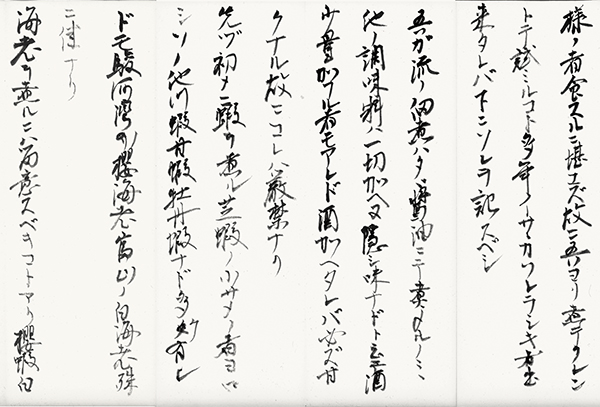 様ノ者食スルニ堪エズ故ニ吾ハヨリ煮テクレン
トテ試ミルコト多年ノーサーカソレラシキ者出
来タレバ下ニソレヲ記スベシ
吾ガ流ノ佃煮ハタダ醤油ニテ煮ルノミ
他ノ調味料ハ一切加ヘヌ隠シ味ナドト云ヒ酒
少量加フル者モアレド酒加ヘタレバ必ズ甘
クナル故ニコレハ厳禁ナリ
先ヅ初メニ蝦ヲ煮ル芝蝦ノ小サメノ者ヨロ
シソノ他川蝦丹蝦牡丹蝦ナド多々有レ
ドモ駿河湾ノ櫻海老富山ノ白海老殊
ニ佳ナリ
海老ヲ煮ルニハ留意スベキコトアリ櫻蝦白